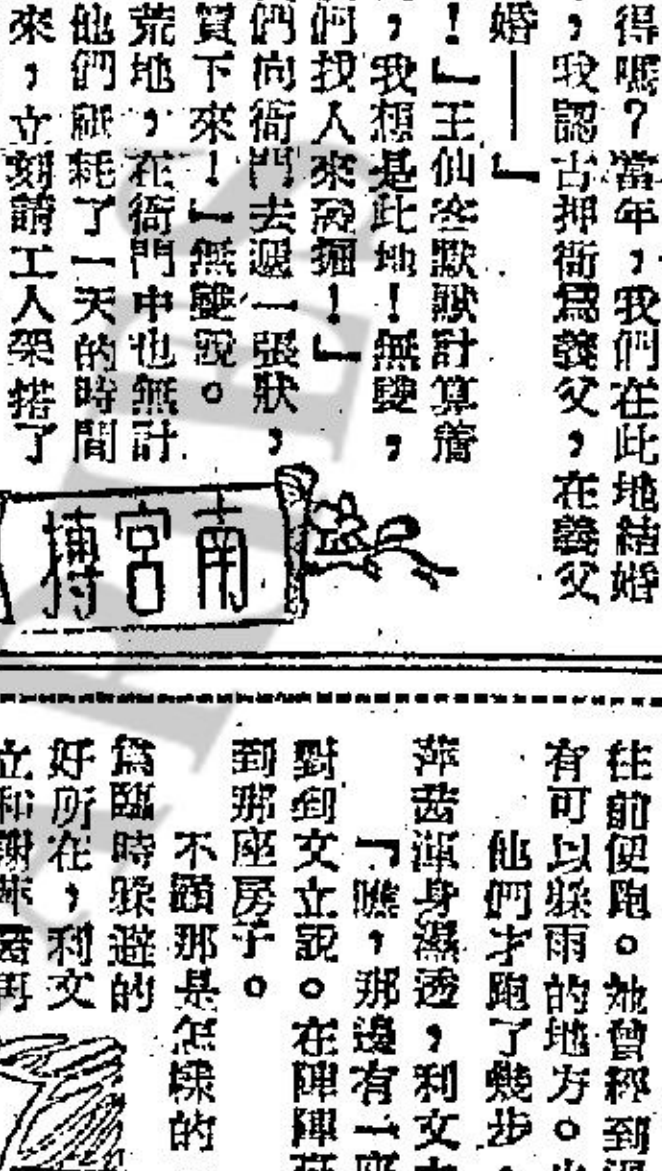 得嗎?當年,我們在此地結婚
,我認古押衙爲義父,在義父
婚——』
!』王仙客默默計算着
,我想是此地!無雙,
們找人來發掘!』
們向衙門去遞一張狀,
買下來!』無雙說。
荒地,在衙門中也無計
他們祇耗了一天的時間
來,立刻請工人架搭了
南宮搏
往前便跑。她曾經到過
有可以躲雨的地方。
他們才跑了幾步,
萍茜渾身濕透,利文
『瞧,那邊有一座
對利文立說。在陣陣
到那座房子。
不顧那是怎樣的
爲臨時躲避的
好所在,利文
立和謝萍茜再